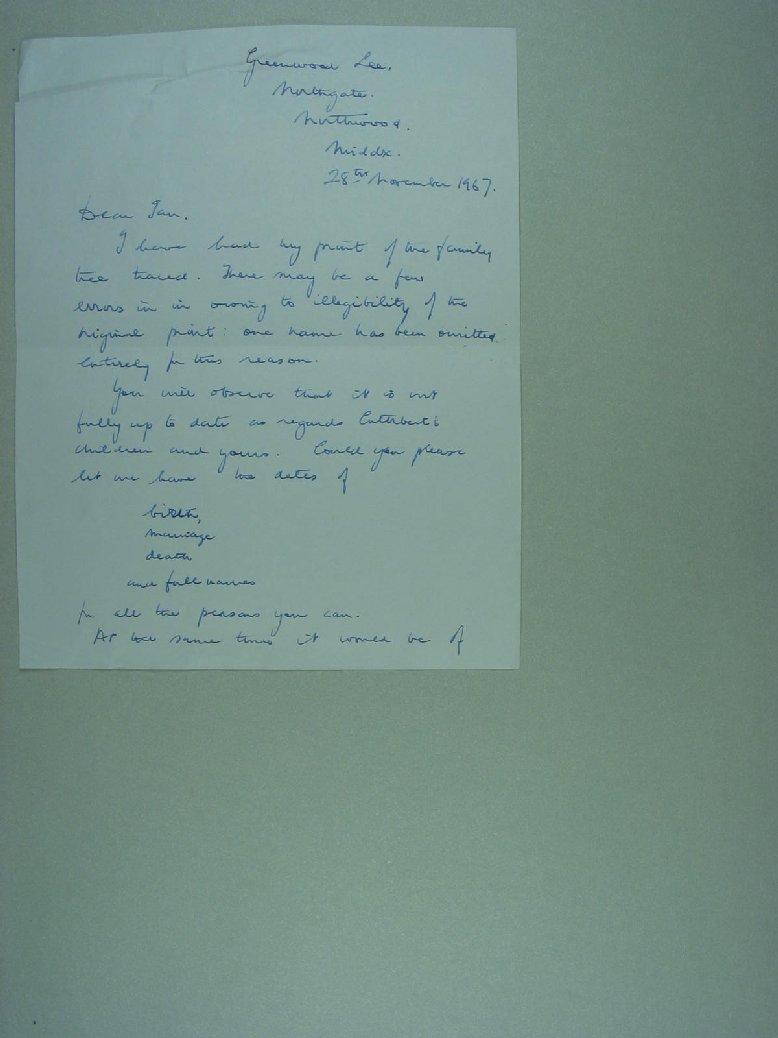 Greenwood Lee.
Northgate.
Northwood.
Middx.
28th November 1967.
Dear Ian,
I have had my print of the family
tree traced. There may be a few
errors in it owing to illegibility of the
original print: one name has been omitted
entirely for this reason.
You will observe that it is not
fully up to date as regards Cuthbert's
children and yours. Could you please
let me have the dates of
birth,
marriage
death
and full names
for all the persons you can.
At the same time it would be of